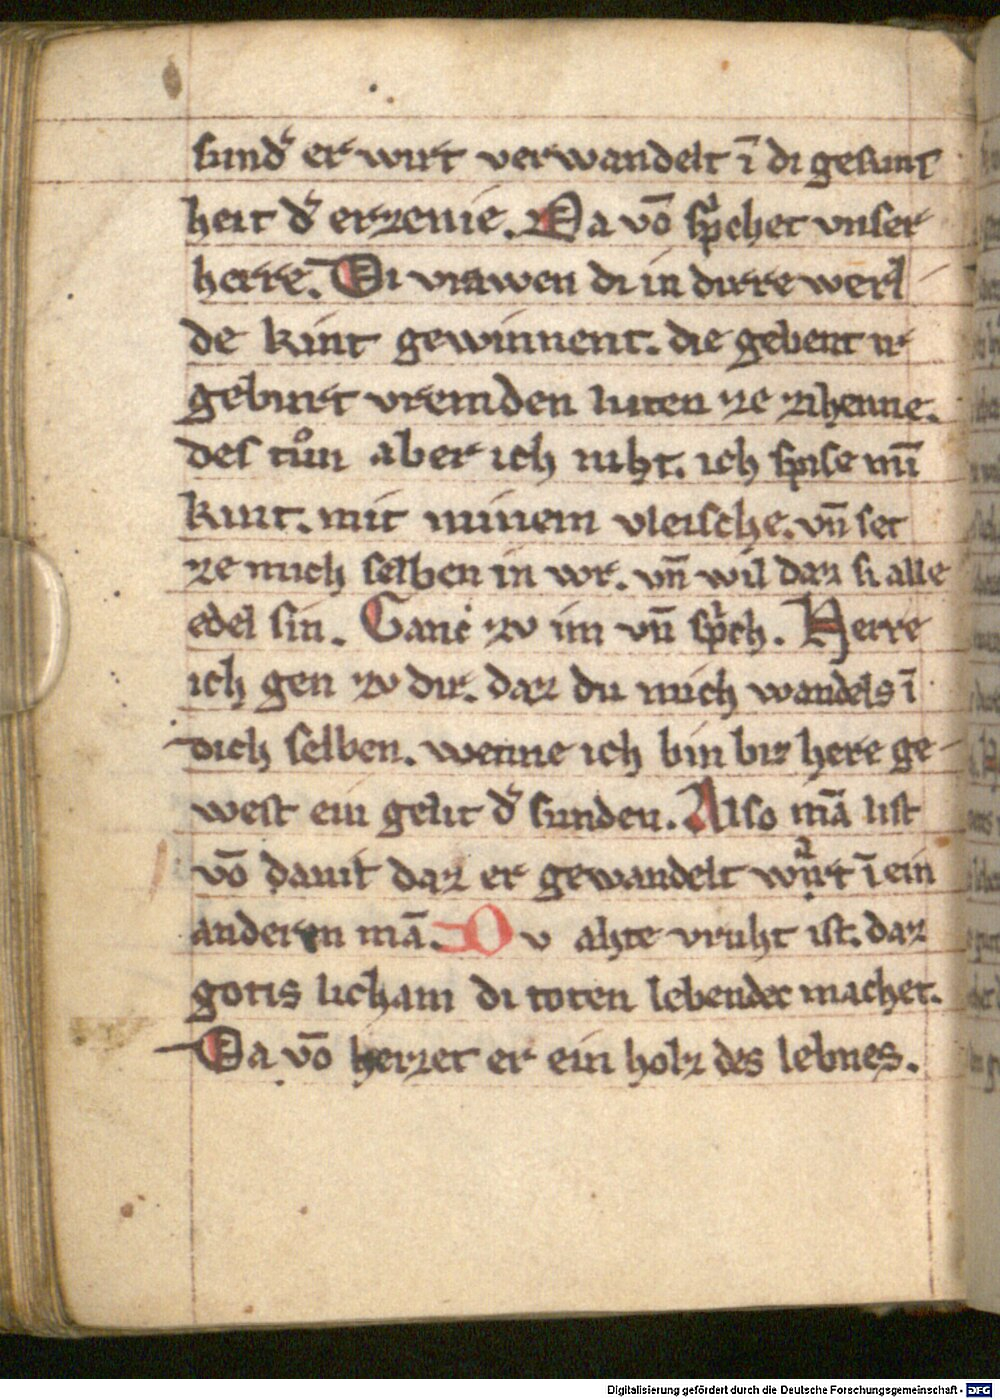 sund͛ er wirt verwandelt ī di gesunt
heit d͛ erzenie. Da vō sp̄chet vnser
herre. Di vrawen di in dirre werl
de kint gewinnent. die gebent ir
geburt vremden luten ze zihenne.
des tůn aber ich niht. ich spise mī
kint. mit minem vleische. vn̄ set
ze mich selben in wr. vn̄ wil daz si alle
edel sin. Ganc zv im vn̄ sp̄ch. Herre
ich gen zv dir. daz du mich wandels ī
dich selben. wenne ich bin biz here ge
west ein gelit d͛ sunden. Also mā list
vō dauit daz er gewandelt wurt ī ein
anderen mā. Dv ahte vruht ist. daz
gotis licham di toten lebendec machet.
Da vō heizet er ein holz des lebnes.
Digitalisierung gefördert durch die Deutsche Forschungsgemeinschaft - DFG